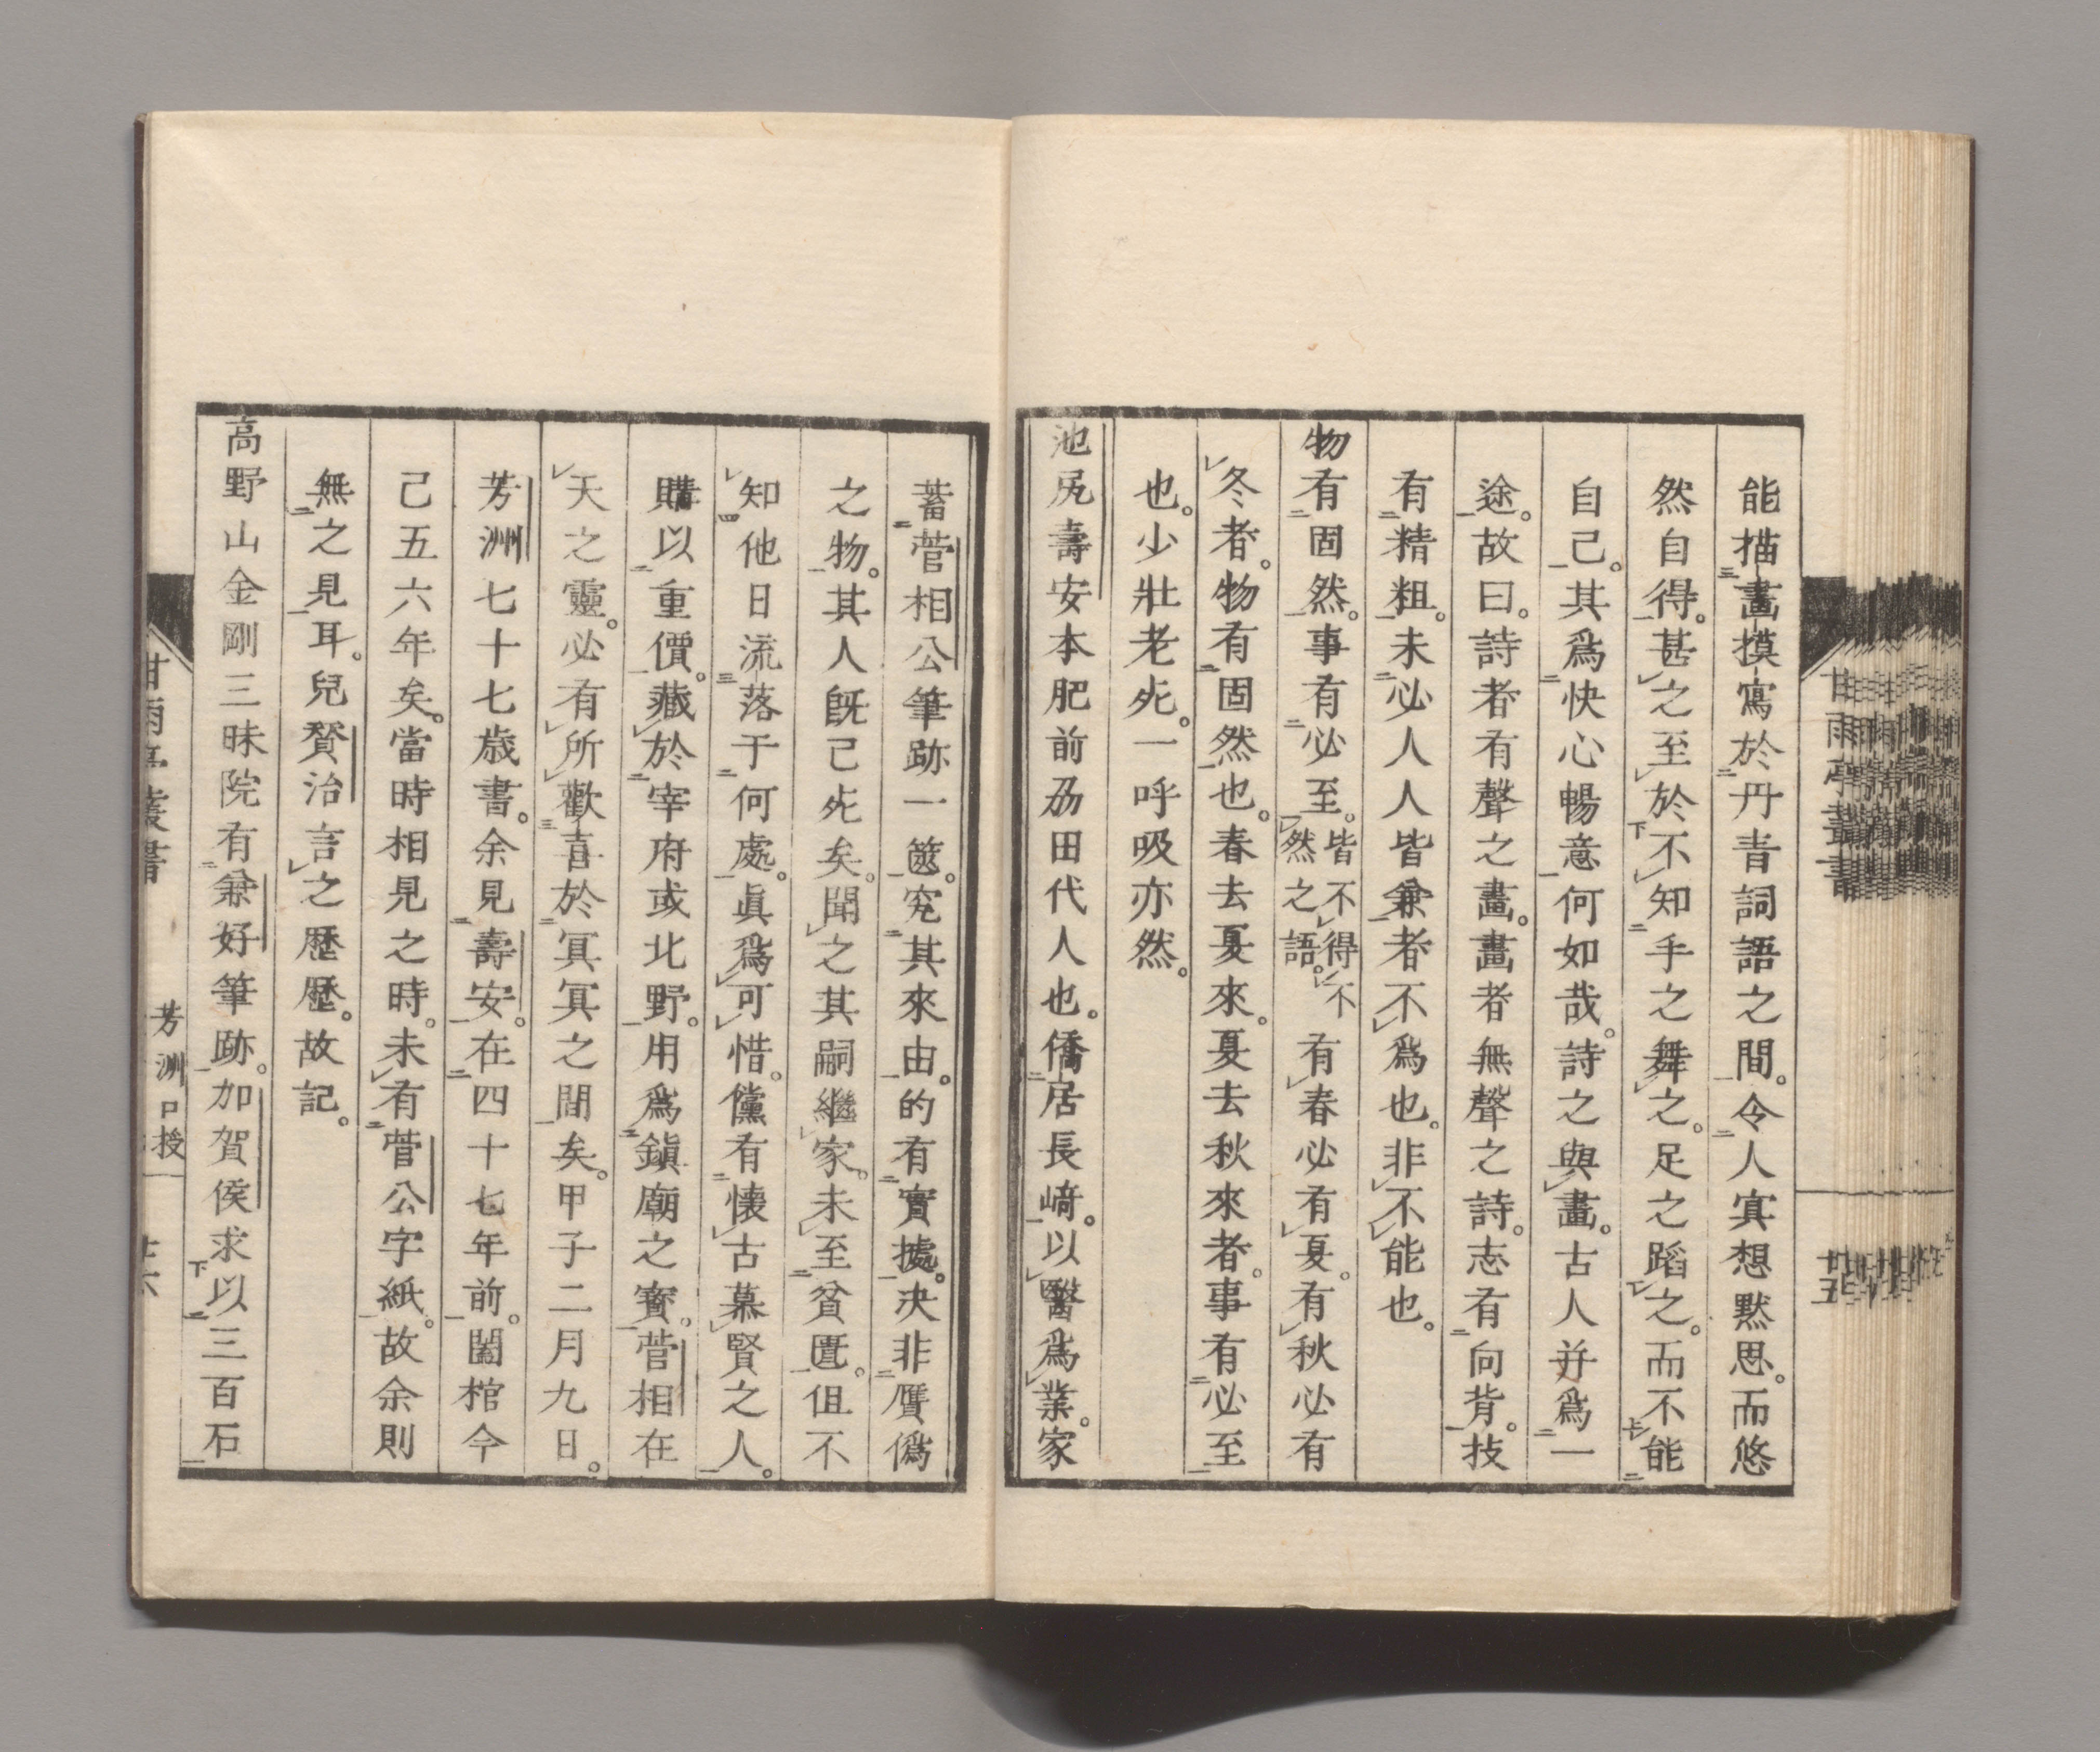 能描畫摸寫於丹青詞語之間。令人寘想默思。而悠
然自得。甚之至於不知手之舞之。足之蹈之。而不能
自己。其爲快心暢意何如哉。詩之與畫。古人并爲一
途。故曰。詩者有聲之畫。畫者無聲之詩。志有向背。技
有精粗。未必人人皆兼者不爲也。非不能也。
物有固然。事有必至。皆不得不然之語。有春必有夏。有秋必有
冬者。物有固然也。春去夏來。夏去秋來者。事有必至
也。少壯老死。一呼吸亦然。
池尻壽安本肥前刕田代人也。僑居長崎。以醫爲業。家
甘雨亭叢書
廿五
蓄菅相公筆跡一篋。究其來由。的有實據。决非贗僞
之物。其人旣已死矣。聞之其嗣繼家。未至貧匱。伹不
知他日流落于何處。眞爲可惜。儻有懐古慕賢之人。
購以重價。藏於宰府或北野。用爲鎭廟之寳。菅相在
天之靈。必有所歡喜於冥冥之間矣。甲子二月九日。
芳洲七十七歳書。余見壽安。在四十七年前。闔棺今
己五六年矣。當時相見之時。未有菅公字紙。故余則
無之見耳。兒賛治言之歴歴。故記。
高野山金剛三昧院有兼好筆跡。加賀侯求以三百石
甘雨亭叢書
芳洲口授
廿六